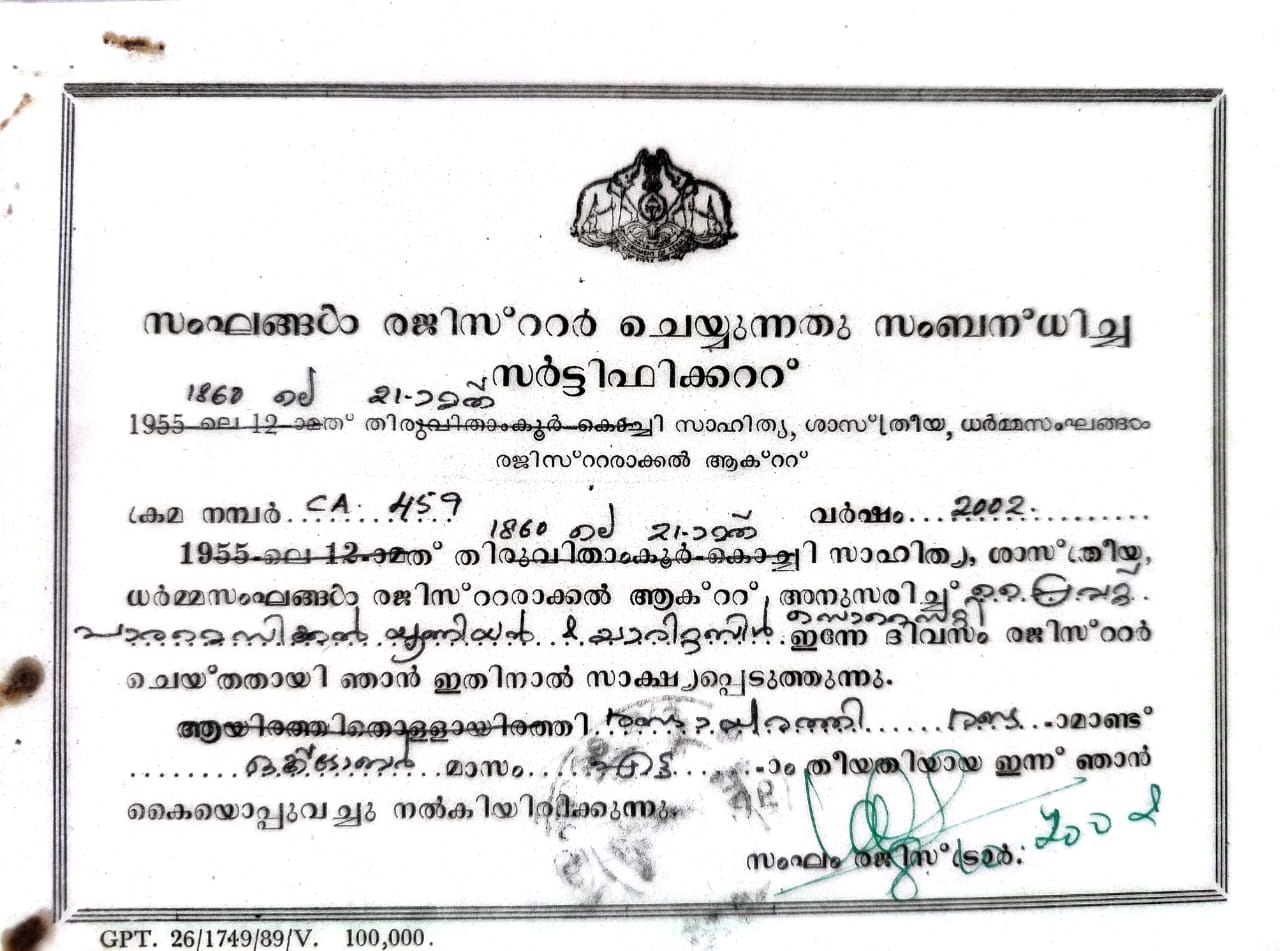 സംഘങ്ങൾ രജിസ്റ്റർ ചെയ്യുന്നതു സംബന്ധിച്ച
സർട്ടിഫിക്കററ്
1860 ലെ 21-ാമത്
1955-ലെ 12-ാമത് തിരുവിതാംകൂർ-കൊച്ചി സാഹിത്യ, ശാസ്ത്രീയ, ധർമ്മസംഘങ്ങൾ
രജിസ്റ്ററാക്കൽ ആക്ററ്
ക്രമ നമ്പർ CA. 459 വർഷം 2002.
1860 ലെ 21-ാമത്
1955-ലെ 12-ാമത് തിരുവിതാംകൂർ-കൊച്ചി സാഹിത്യ, ശാസ്ത്രീയ,
ധർമ്മസംഘങ്ങൾ രജിസ്റ്ററാക്കൽ ആക്ററ് അനുസരിച്ച്
സൊസൈറ്റി
യൂണിയൻ & ഇന്നേ ദിവസം രജിസ്റ്റർ
ചെയ്തതായി ഞാൻ ഇതിനാൽ സാക്ഷ്യപ്പെടുത്തുന്നു.
ആയിരത്തിതൊള്ളായിരത്തി രണ്ടായിരത്തി രണ്ട -ാമാണ്ട്
ഒക്ടോബർ മാസം എട്ട -ാം തീയതിയായ ഇന്ന് ഞാൻ
കൈയൊപ്പുവച്ചു നൽകിയിരിക്കുന്നു.
സംഘം രജിസ്ട്രാർ.
GPT. 26/1749/89/V. 100,000.